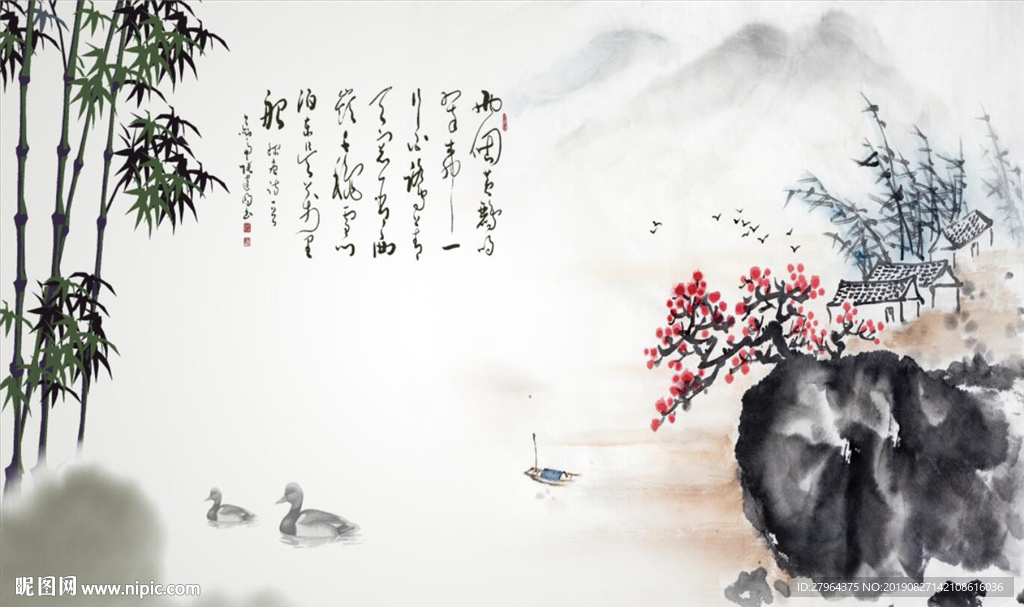 兩個黃鸝鳴
翠柳一
行白鷺上青
天窗含西
嶺千秋雪門
泊東吳万里
船
昵图网 www.nipic.com
ID:27964375 NO:20190827142108616036